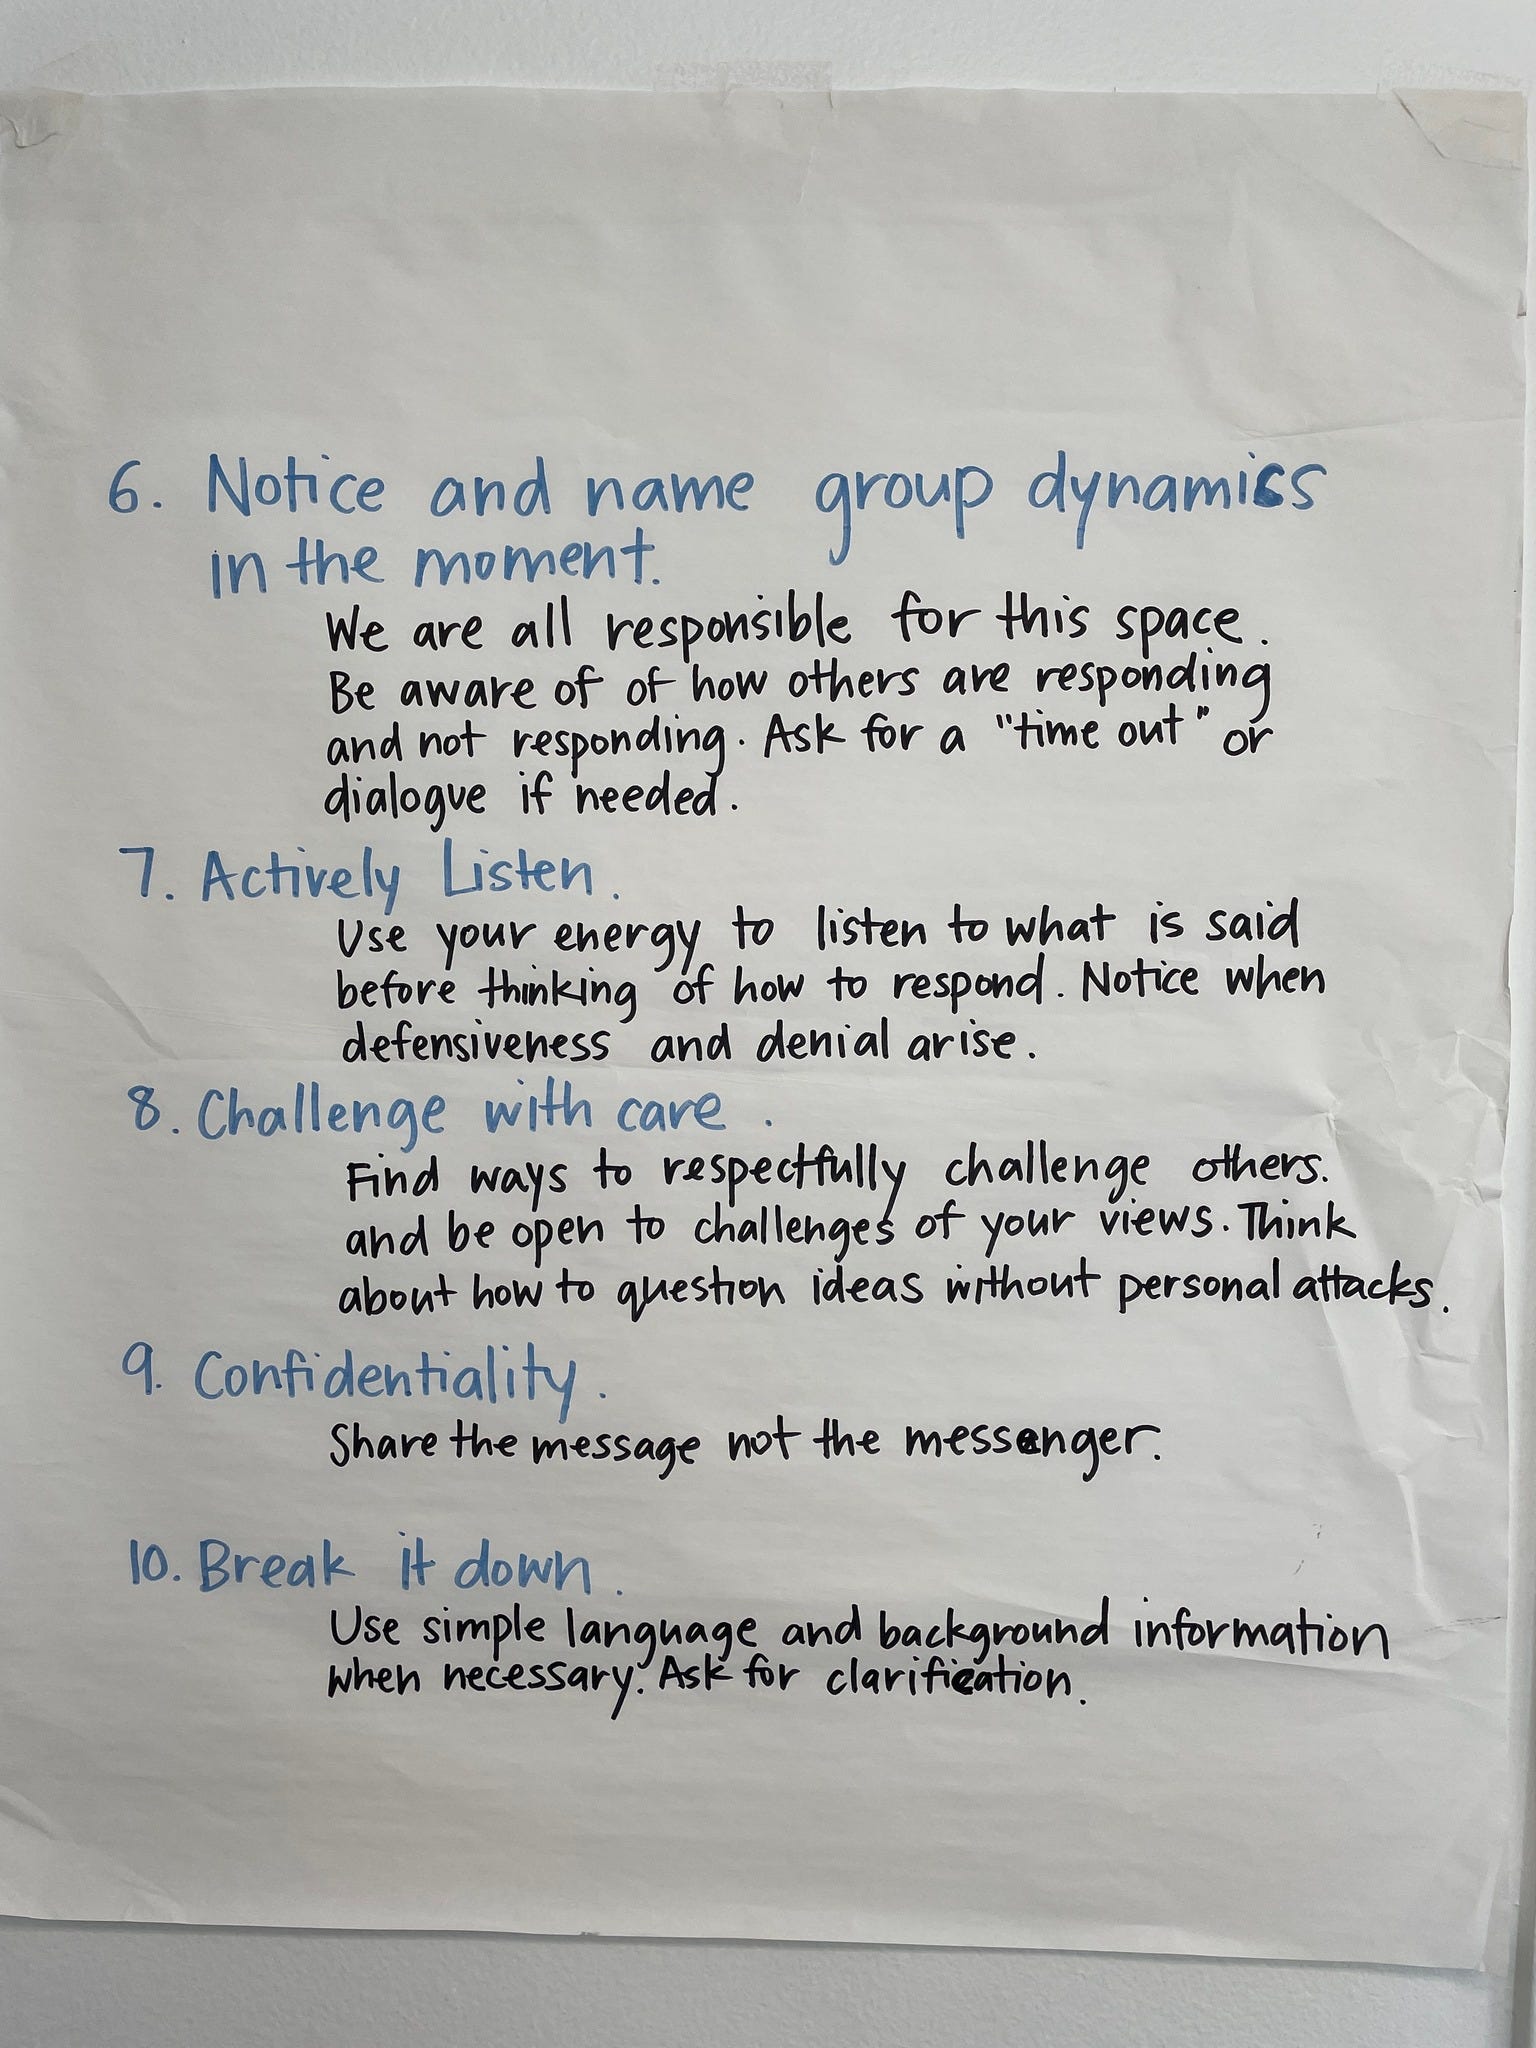 6. Notice and name group dynamics
in the moment.
We are all responsible for this space.
Be aware of of how others are responding
and not responding. Ask for a "time out" or
dialogue if needed.
7. Actively Listen.
Use your energy to listen to what is said
before thinking of how to respond. Notice when
defensiveness and denial arise.
8. Challenge with care.
Find ways to respectfully challenge others.
and be open to challenges of your views. Think
about how to question ideas without personal attacks.
9. Confidentiality.
Share the message not the messenger.
10. Break it down.
Use simple language and background information
when necessary. Ask for clarification.